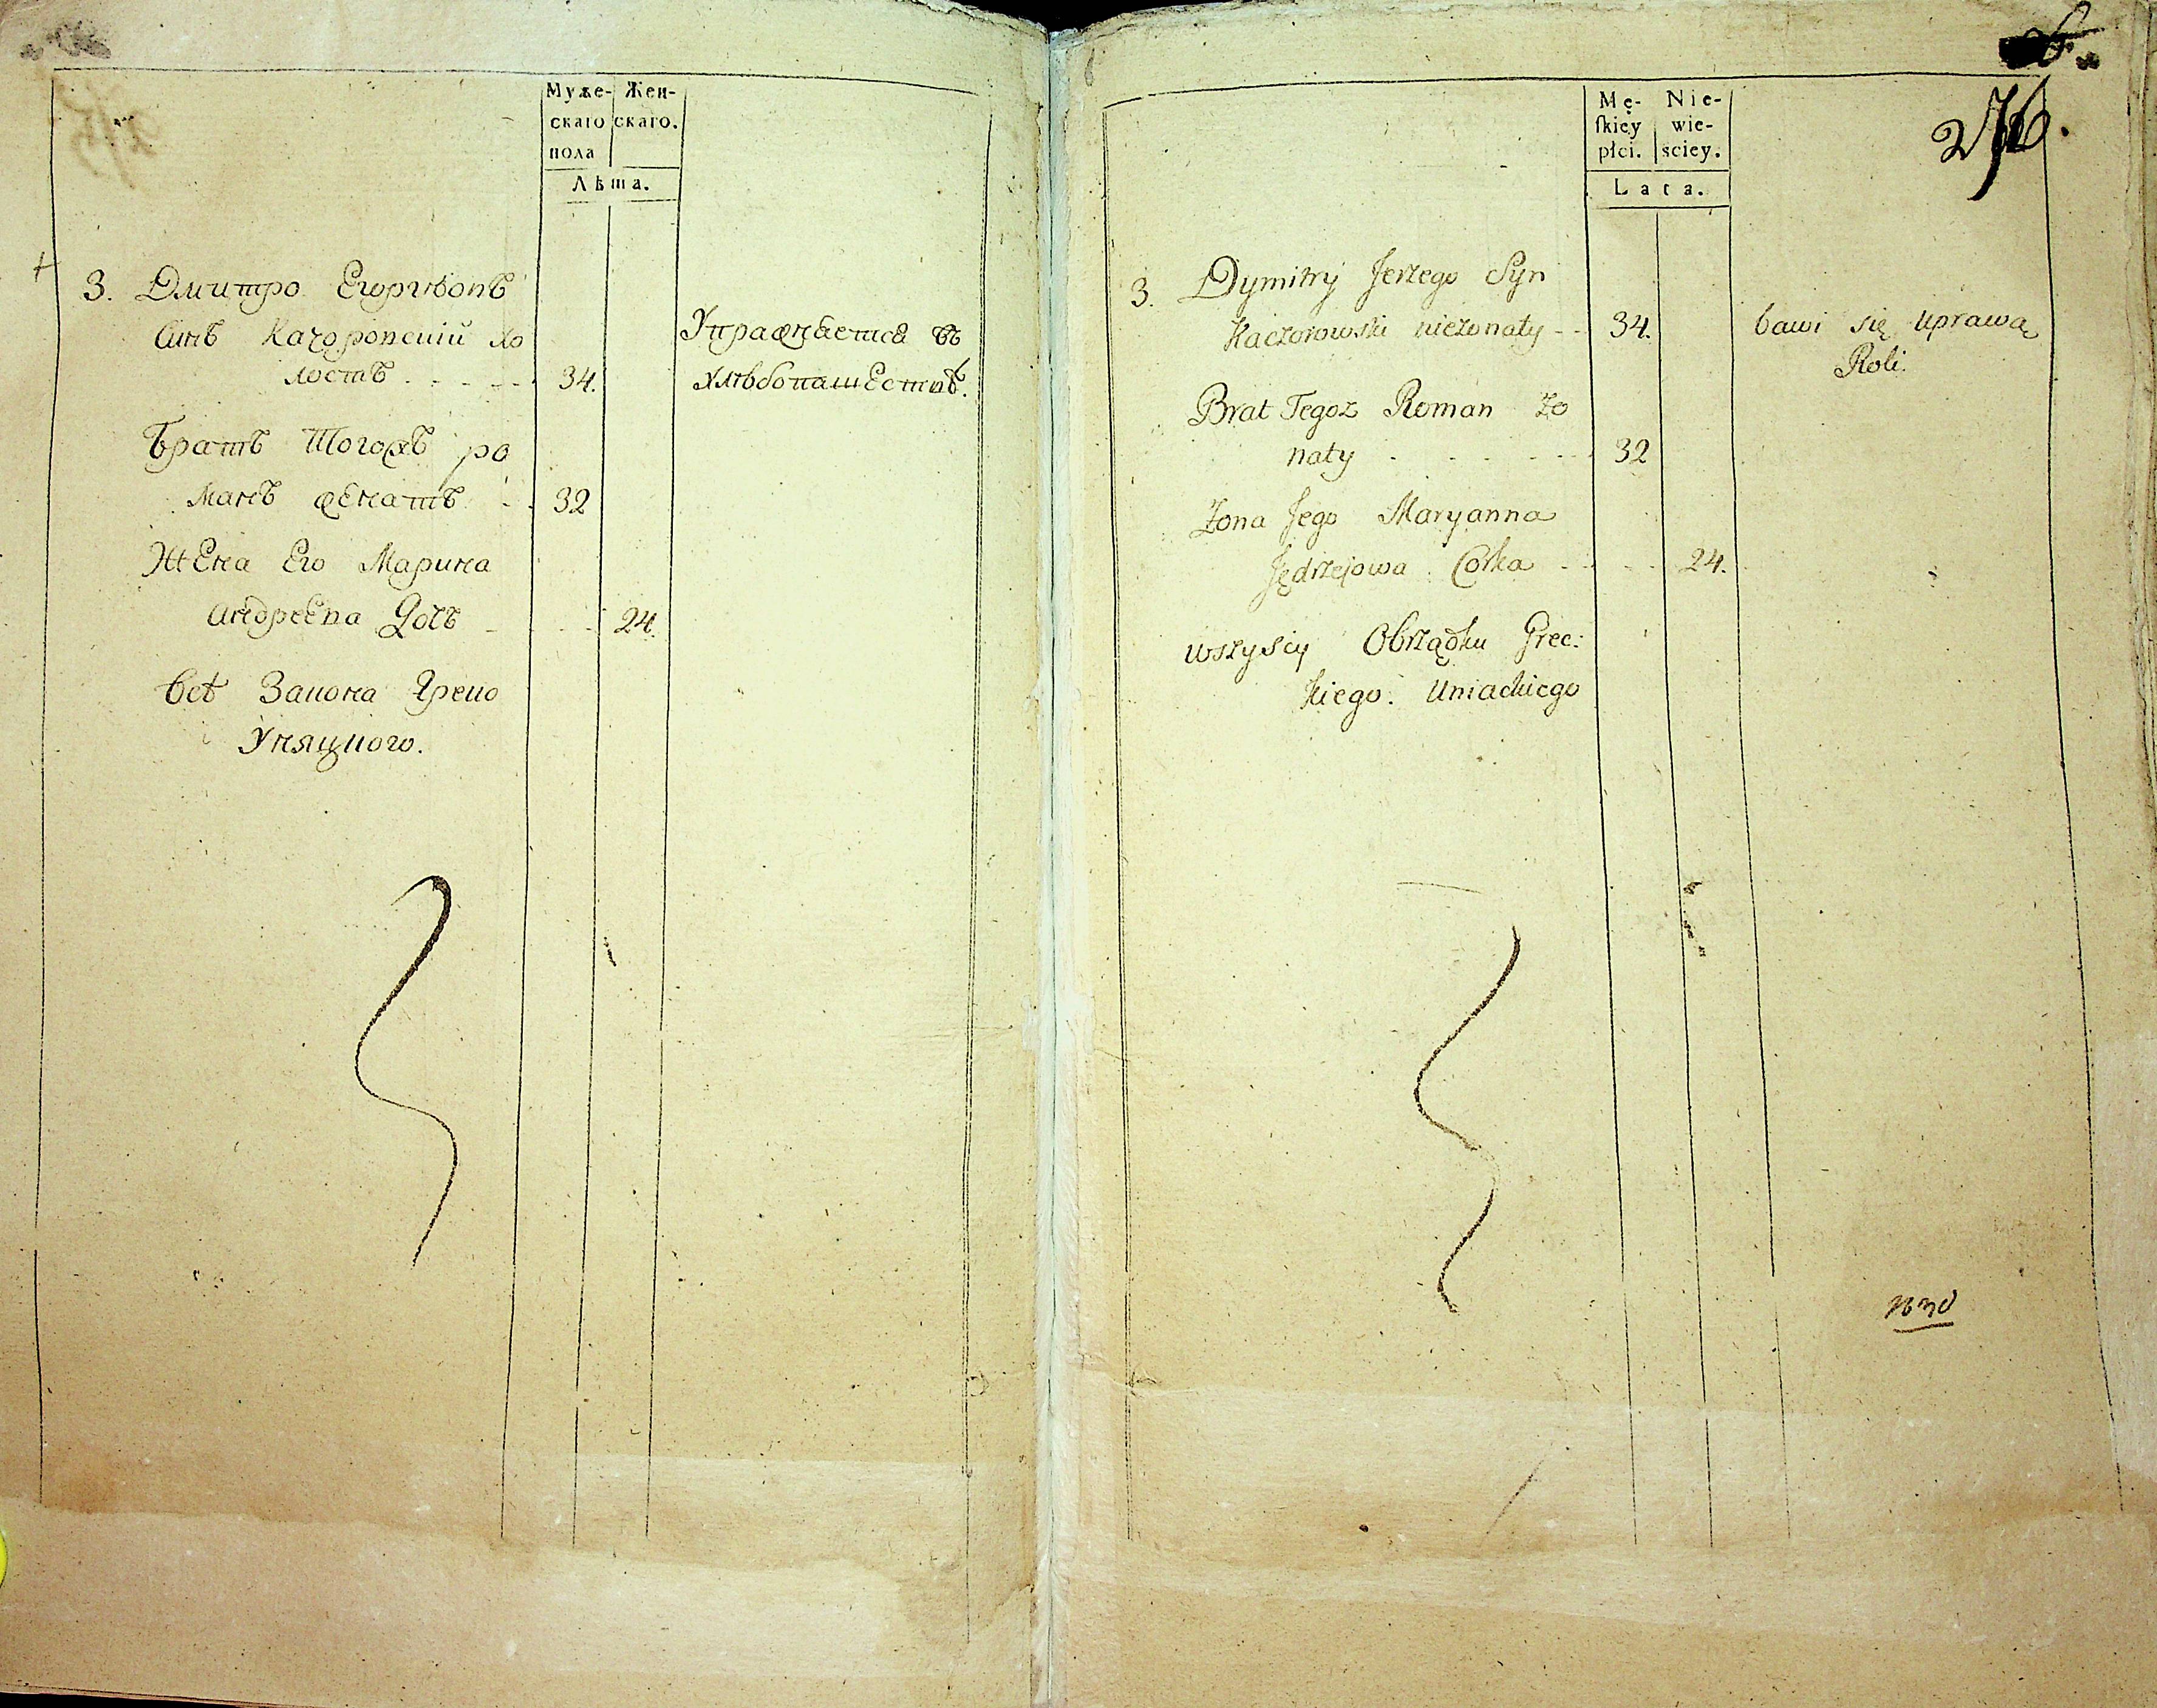 Муже- Жен-
скаго скаго.
пола
Лѣта.
3. Дмитро Егоривовъ
Синъ Качоровский хо
лостъ . . . . . 34.
Упражняется въ
хлѣбопашествѣ.
Братъ Тогожъ Ро
манъ женатъ . . 32
Жена Его Марина
Андреева Дочъ . . . 24.
Всѣ Закона Греко
Уняцкого.
Mę- Nie-
ſkiey wie-
płci. sciey.
Lata.
276.
3. Dymitry Jerzego Syn
Kaczorowski nieżonaty - - 34.
bawi się uprawą
Roli.
Brat Tegoz Roman żo
naty . . . . . 32
Zona Jego Maryanna
Jędrzejowa Corka . . . 24.
wszyscy Obrządku Grec:
kiego. Uniackiego